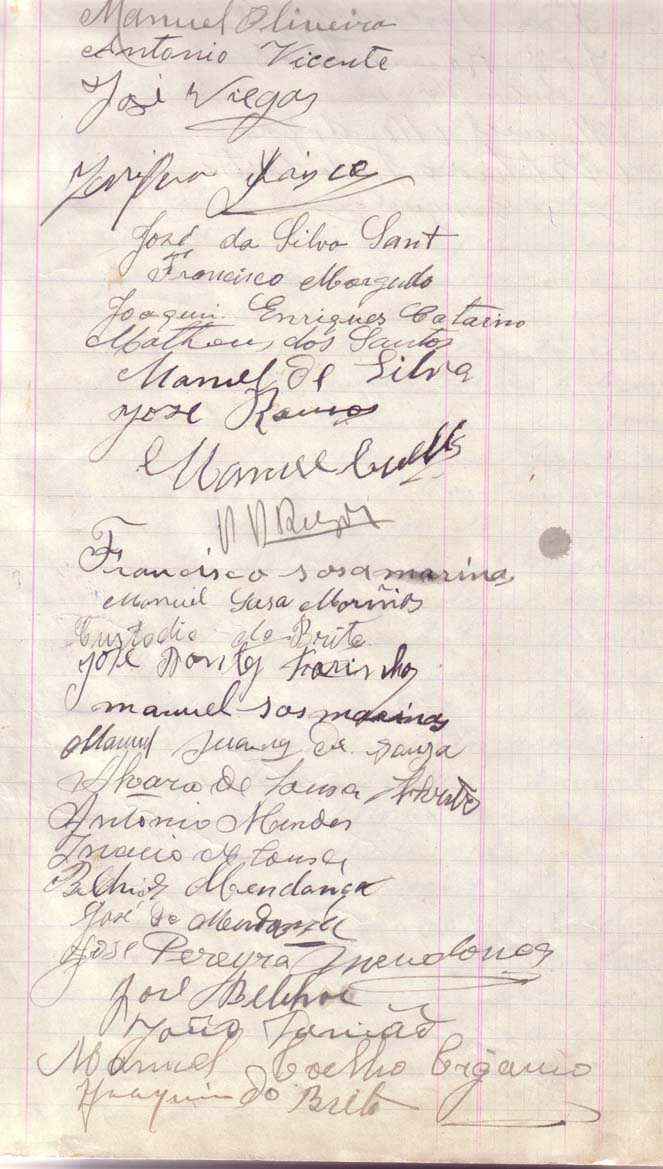 Manuel Oliveira
Antonio Vicente
José Viegas
José da Silva Sant
Francisco Morgado
Joaquin Enriques Catarino
Matheus dos Santos
Manuel de Silva
José Ramos
Manuel
Francisco sosa marinas
Manuel Susa Moriños
Custodio de Brito
José
manuel sos marinas
Manuel Juarez de Souza
Alvaro de Sousa
Antonio Mendes
Inacio de Sousa
Belchior Mendonça
José de Mendonça
José Pereyra Mendonca
José Belchior
João Damião
Manuel Coelho
Joaquin do Brito